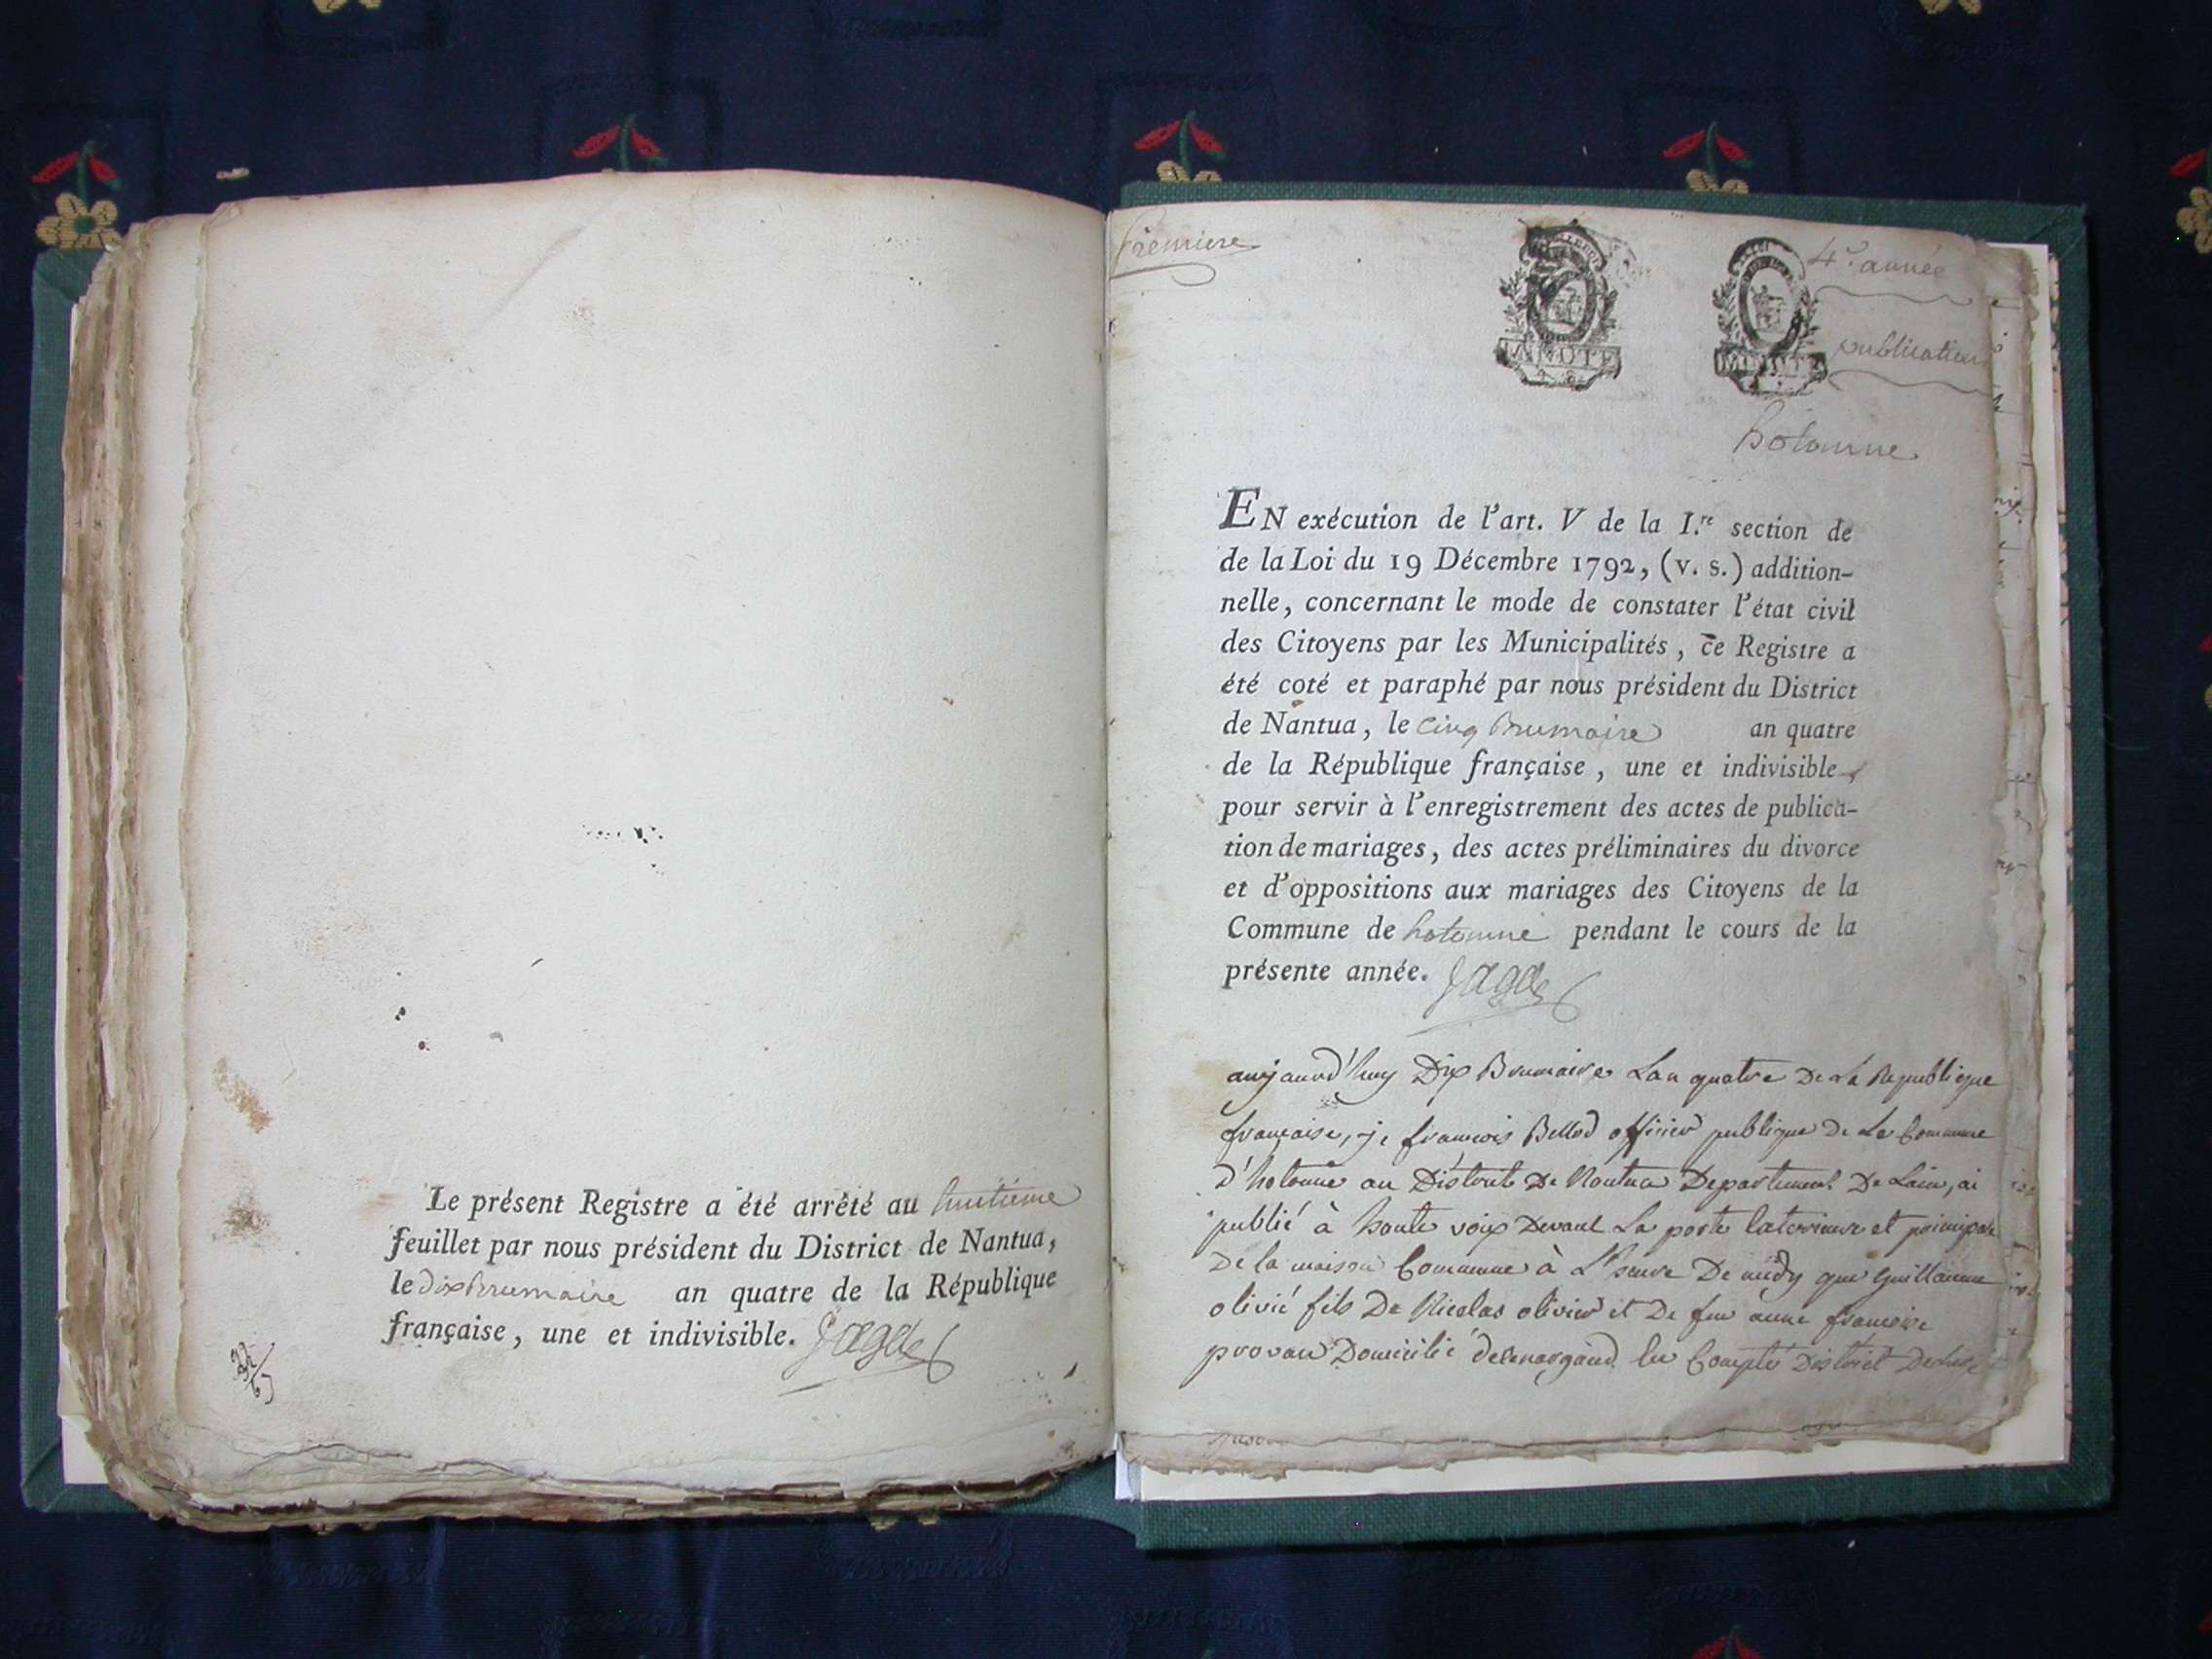 Le présent Registre a été arrêté au huitième
feuillet par nous président du District de Nantua,
le dix Brumaire an quatre de la République
française, une et indivisible.
Premiere
4e. année
publication
hotonne
EN exécution de l'art. V de la I.re section de
de la Loi du 19 Décembre 1792, (v. s.) addition-
nelle, concernant le mode de constater l'état civil
des Citoyens par les Municipalités, ce Registre a
été coté et paraphé par nous président du District
de Nantua, le Cinq Brumaire an quatre
de la République française, une et indivisible,
pour servir à l'enregistrement des actes de publica-
tion de mariages, des actes préliminaires du divorce
et d'oppositions aux mariages des Citoyens de la
Commune de hotonne pendant le cours de la
présente année.
aujaurd'huy Dix Brumaire Lan quatre De La Republique
française, je francois Bellod officier publique De La Commune
d'hotonne au District De Nantua Departement De Lain, ai
publié à haute voix Devant La porte et principale
De la maison Commune à L'heure De midy que Guillaume
olivié fils De Nicolas olivier et De feu anne francoise
Domicilié District